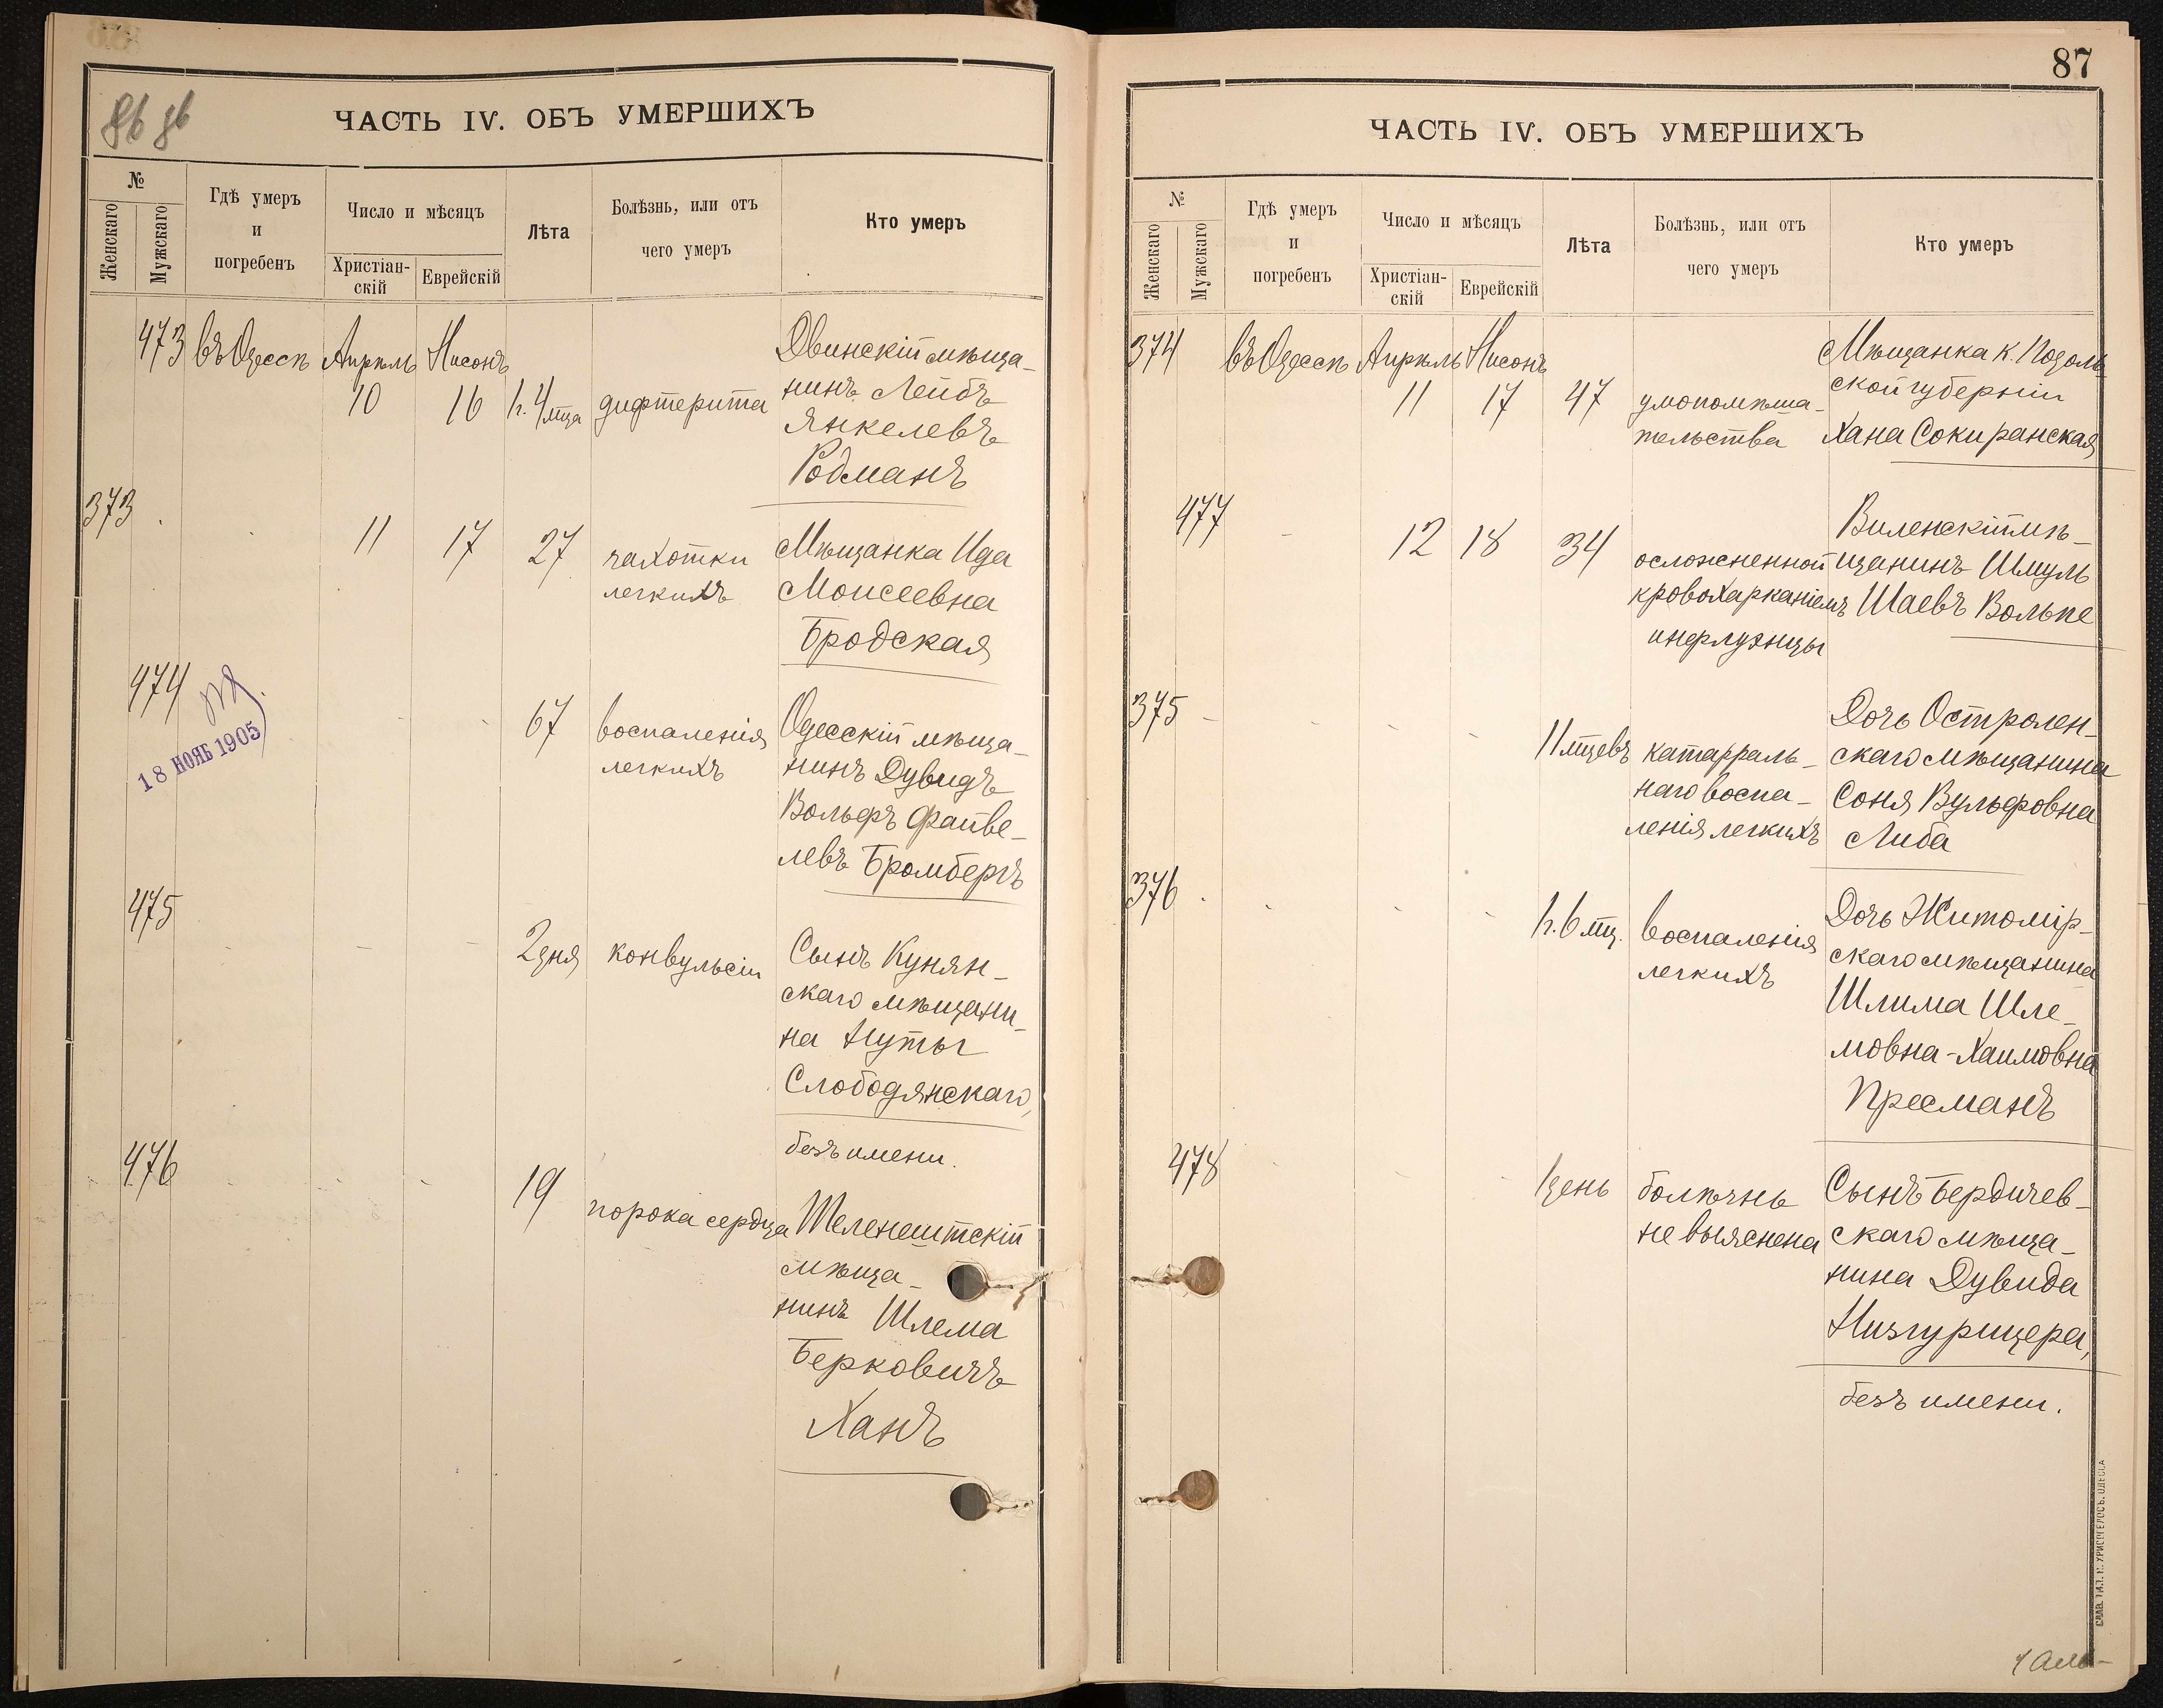 ЧАСТЬ IV. ОБЪ УМЕРШИХЪ
№
Женскаго
Мужскаго
Гдѣ умеръ
и
погребенъ
Число и мѣсяцъ
Христіан-
скій
Еврейскій
Лѣта
Болѣзнь, или отъ
чего умеръ
Кто умеръ
473 въ Одессѣ Апрѣль Нисонъ
10 16 1 г. 4 мца дифтерита
Двинскій мѣща-
нинъ Лейбъ
Янкелевъ
Родманъ
373
11 17 27 чахотки
легкихъ
Мѣщанка Ида
Моисеевна
Бродская
474
18 НОЯБ 1905
67 воспаленія
легкихъ
Одесскій мѣща-
нинъ Дувидъ
Вольфъ Файве-
левъ Бромбергъ
475
2 дня конвульсіи
Сынъ Кунян-
скаго мѣщани-
на Нуты
Слободянскаго,
безъ имени.
476
19 порока сердца
Теленештскій
мѣща-
нинъ Шлема
Берковичъ
Ханъ
87
ЧАСТЬ IV. ОБЪ УМЕРШИХЪ
№
Женскаго
Мужскаго
Гдѣ умеръ
и
погребенъ
Число и мѣсяцъ
Христіан-
скій
Еврейскій
Лѣта
Болѣзнь, или отъ
чего умеръ
Кто умеръ
374 въ Одессѣ Апрѣль Нисонъ
11 17 47 умопомѣша-
тельства
Мѣщанка К. Подоль-
ской губерніи
Хана Сокиранская
477
12 18 34 осложненной
кровохарканіемъ
инфлуэнцы
Виленскій мѣ-
щанинъ Шмуль
Шаевъ Вольпе
375
11 мцевъ катарраль-
наго воспа-
ленія легкихъ
Дочь Остролен-
скаго мѣщанина
Соня Вульфовна
Либа
376
1 г. 6 мц. воспаленія
легкихъ
Дочь Житомір-
скаго мѣщанина
Шлима Шле-
мовна-Хаимовна
Пресманъ
478
1 день болѣзнь
не выяснена
Сынъ Бердичев-
скаго мѣща-
нина Дувида
Низгурицера,
безъ имени.